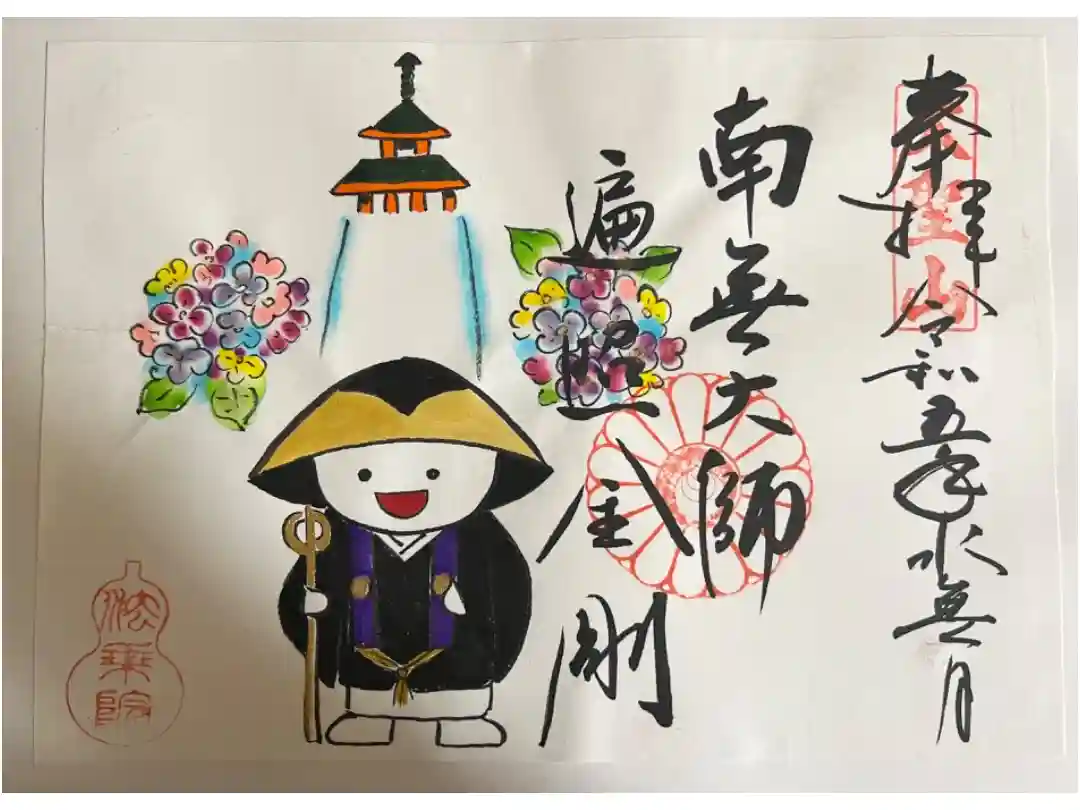 奉拝 令和五年水無月
南無大師
遍照金剛
法乗院